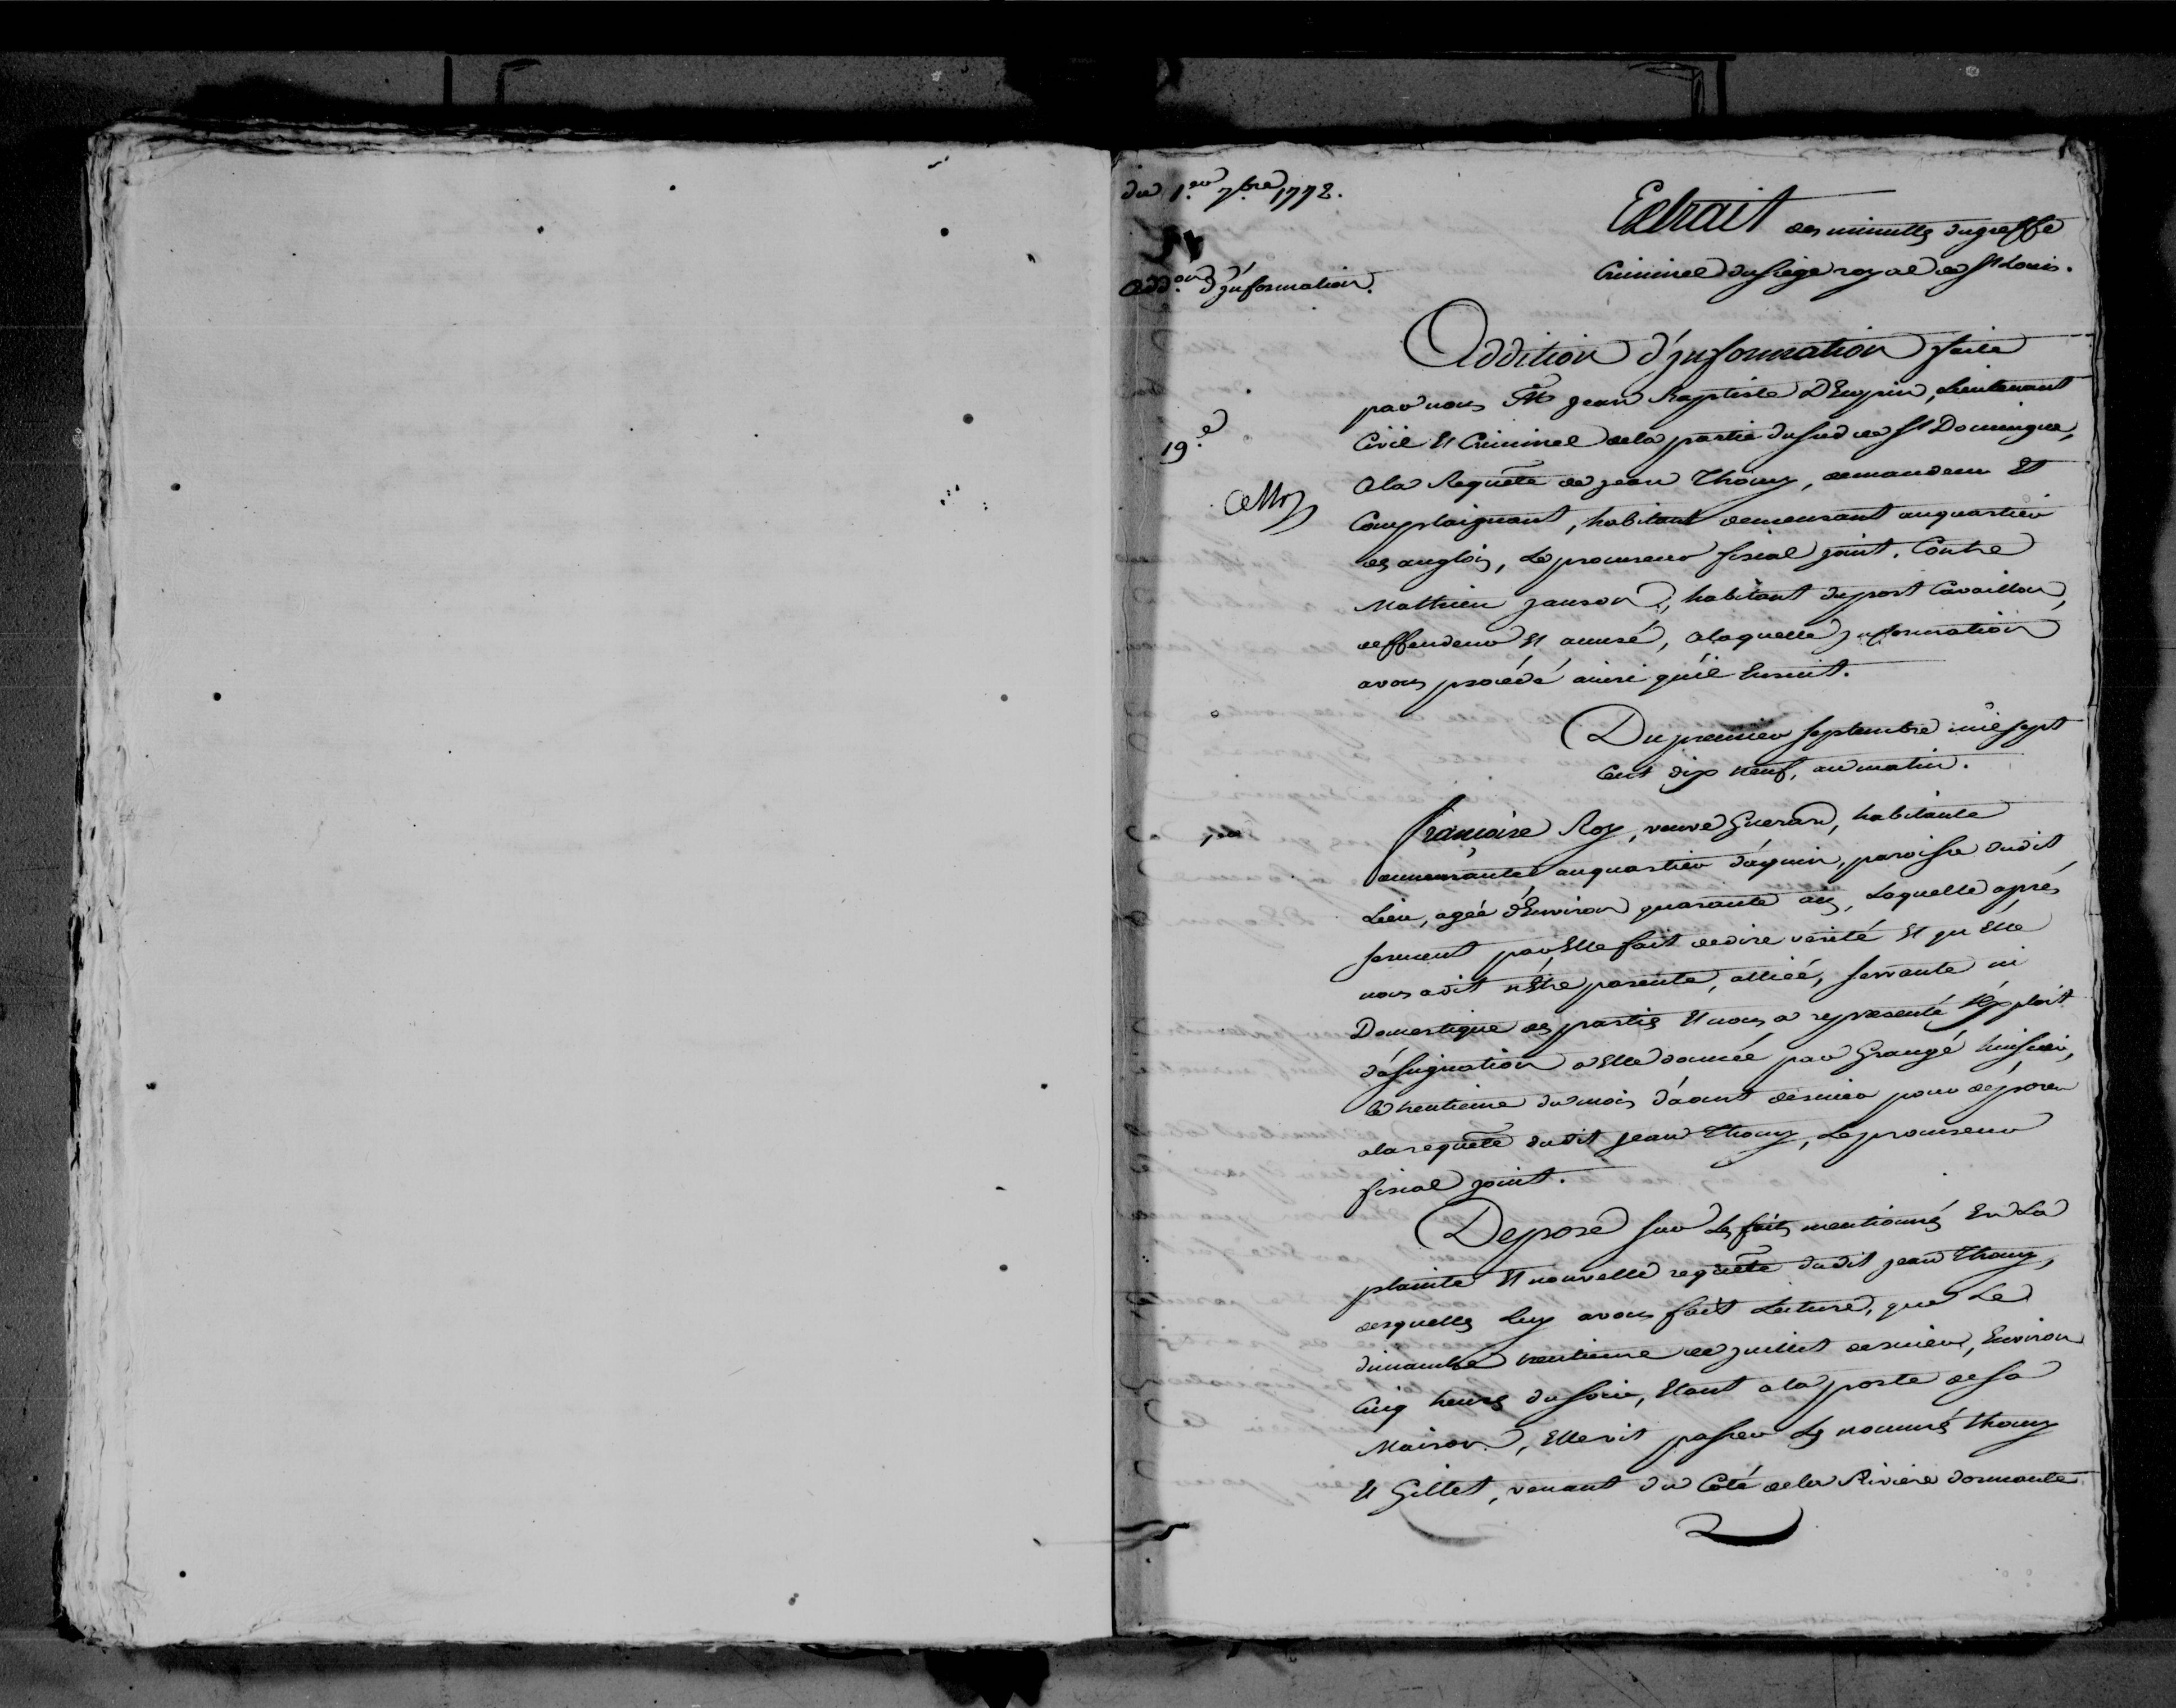 du 1.er 7.bre 1772.
Add.on d'jnformation.
19.e
1.er
Extrait des minuttes du greffe
Criminel du siege royal de St Louis.
Addition d'jnformation faite
par nous Me jean Baptiste DEupin, Lieutenant
Civil Et Criminel de la partie du sud de St Domingue,
a la Requête de jean Thomy, demandeur Et
Complaignant, habitant demeurant au quartier
des anglois, Le procureur fiscal joint. Contre
Mathieu janson, habitant du port Cavaillon,
deffendeur Et accusé, a laquelle jnformation
avons procédé ainsi qu'il Ensuit.
Du premier septembre mil sept
Cent dix neuf, au matin.
françoise Roy, veuve Guerard, habitante
demeurante au quartier d'aquin, paroisse dudit
Lieu, agée d'Environ quarante ans, Laquelle après
serment par Elle fait de dire vérité Et qu'Elle
nous a dit n'Etre parente, alliée, servante ni
Domestique des parties Et nous a representé l'Exploit
d'assignation a Elle donnée par Grangé huissier,
le trentieme du mois d'aout dernier pour déposer
a la requête dudit jean Thomy, Le procureur
fiscal joint.
Depose sur Les faits mentionnés En La
plainte Et nouvelle requête dudit jean Thomy,
desquelles Luy avons fait Lecture, que Le
dimanche trentieme de juillet dernier, Environ
Cinq heures du soir, Etant a la porte de sa
Maison, Elle vit passer Les nommés Thomy
Et Gillet, venant du Coté de la Riviere dormante